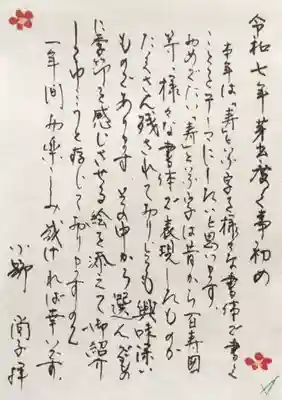 令和七年 芽出度く事初め
本年は「寿」と いう字を様々な書体で書く
ことをテーマにしたいと思います
おめでたい「寿」という字は昔から百寿図
等、様々な書体で表現したものが
たくさん残されておりとても興味深い
ものがあります その中から選んだもの
に季節を感じさせる絵を添えて御紹介
しようと存じておりますので
一年間お楽しみ頂ければ幸いです
小野 尚子 拝